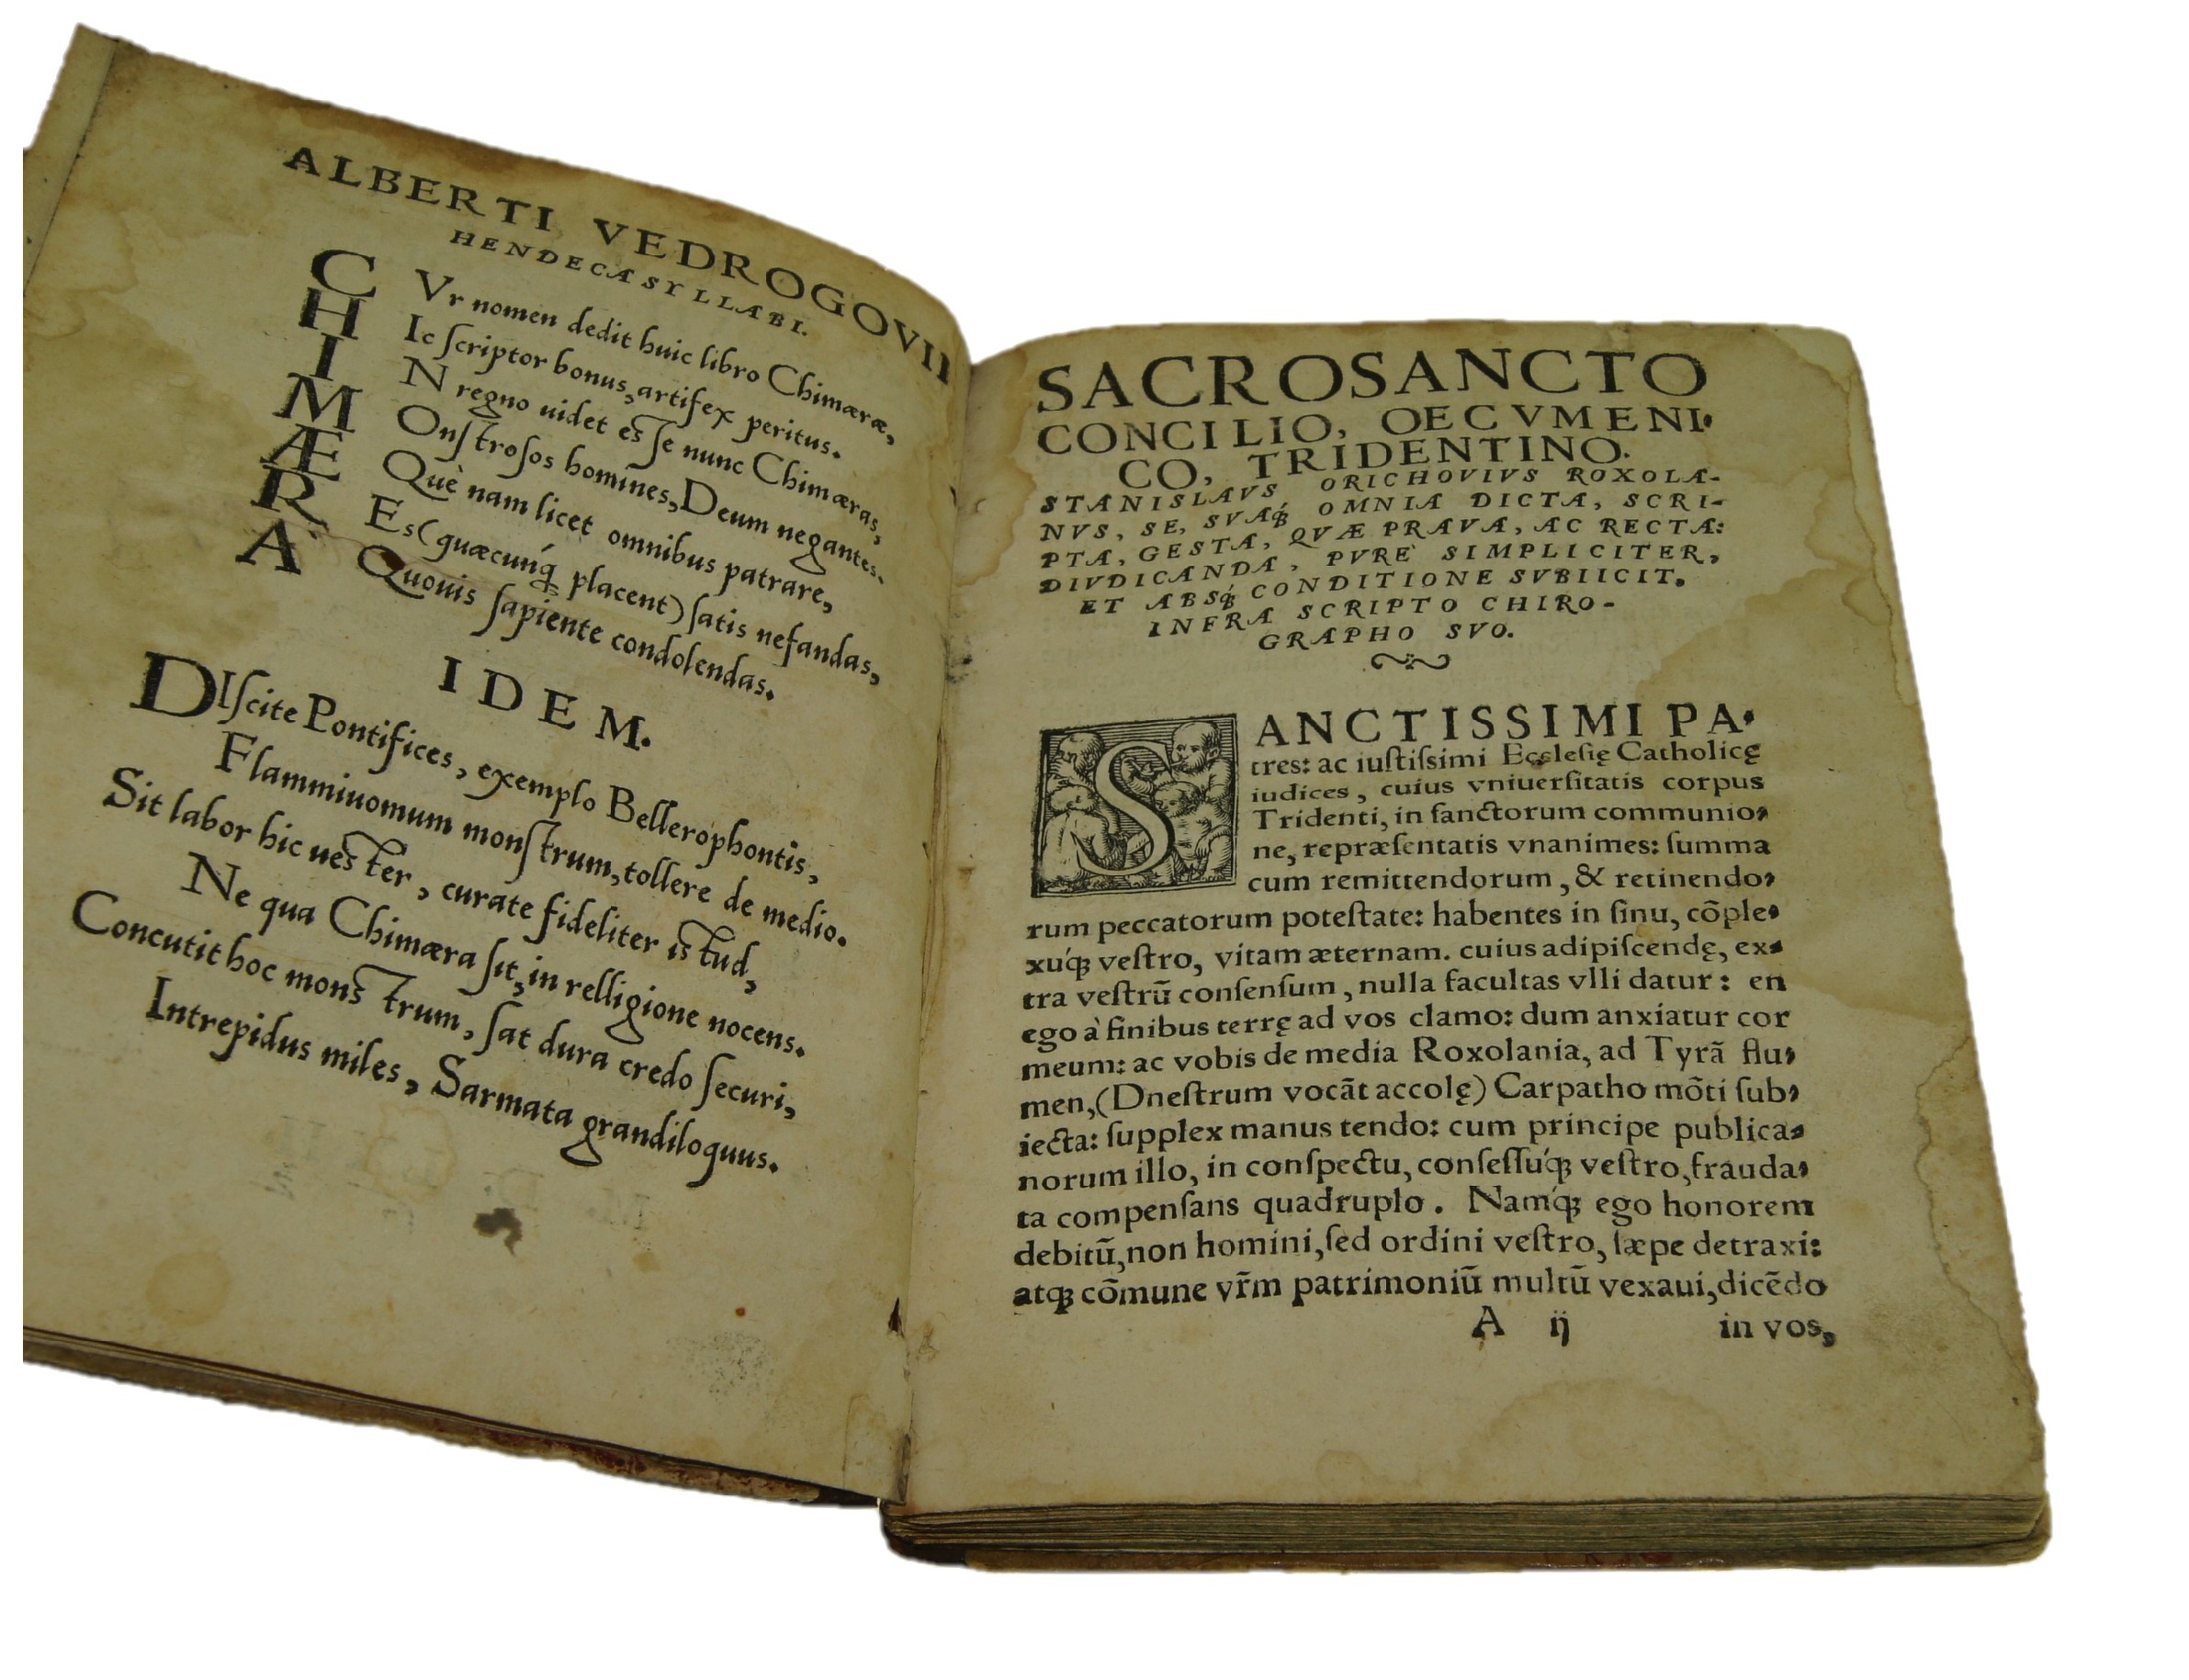 ALBERTI VEDROGOVII
HENDECASYLLABI.
CVr nomen dedit huic libro Chimæræ,
HIc ſcriptor bonus, artifex peritus.
IN regno uidet eſſe nunc Chimæras,
MOnſtroſos homines, Deum negantes.
ÆQuè nam licet omnibus patrare,
REs (quæcunq́ꝫ placent) ſatis nefandas,
A Quouis ſapiente condolendas.
IDEM.
DIſcite Pontifices, exemplo Bellerophontis,
Flammiuomum monſtrum, tollere de medio.
Sit labor hic ueſter, curate fideliter iſtud,
Ne qua Chimæra ſit, in relligione nocens.
Concutit hoc monſtrum, ſat dura credo ſecuri,
Intrepidus miles, Sarmata grandiloquus.
SACROSANCTO
CONCILIO, OECVMENI-
CO, TRIDENTINO.
STANISLAVS ORICHOVIVS ROXOLA-
NVS, SE, SVAQ́ꝫ OMNIA DICTA, SCRI-
PTA, GESTA, QVÆ PRAVA, AC RECTA:
DIVDICANDA, PVRE SIMPLICITER,
ET ABSQ́ꝫ CONDITIONE SVBIICIT.
INFRA SCRIPTO CHIRO-
GRAPHO SVO.
SANCTISSIMI PA-
tres: ac iuſtiſsimi Eccleſię Catholicę
iudices, cuius vniuerſitatis corpus
Tridenti, in ſanctorum communio-
ne, repræſentatis vnanimes: ſumma
cum remittendorum, & retinendo-
rum peccatorum poteſtate: habentes in ſinu, cõple-
xuq́ꝫ veſtro, vitam æternam. cuius adipiſcendę, ex-
tra veſtrũ conſenſum, nulla facultas vlli datur: en
ego à finibus terrę ad vos clamo: dum anxiatur cor
meum: ac vobis de media Roxolania, ad Tyrã flu-
men, (Dneſtrum vocãt accolę) Carpatho mõti ſub-
iecta: ſupplex manus tendo: cum principe publica-
norum illo, in conſpectu, conſeſſuq́ꝫ veſtro, frauda-
ta compenſans quadruplo. Namq́ꝫ ego honorem
debitũ, non homini, ſed ordini veſtro, ſæpe detraxi:
atqꝫ cõmune vr̃m patrimoniũ multũ vexaui, dicẽdo
A ij in vos,